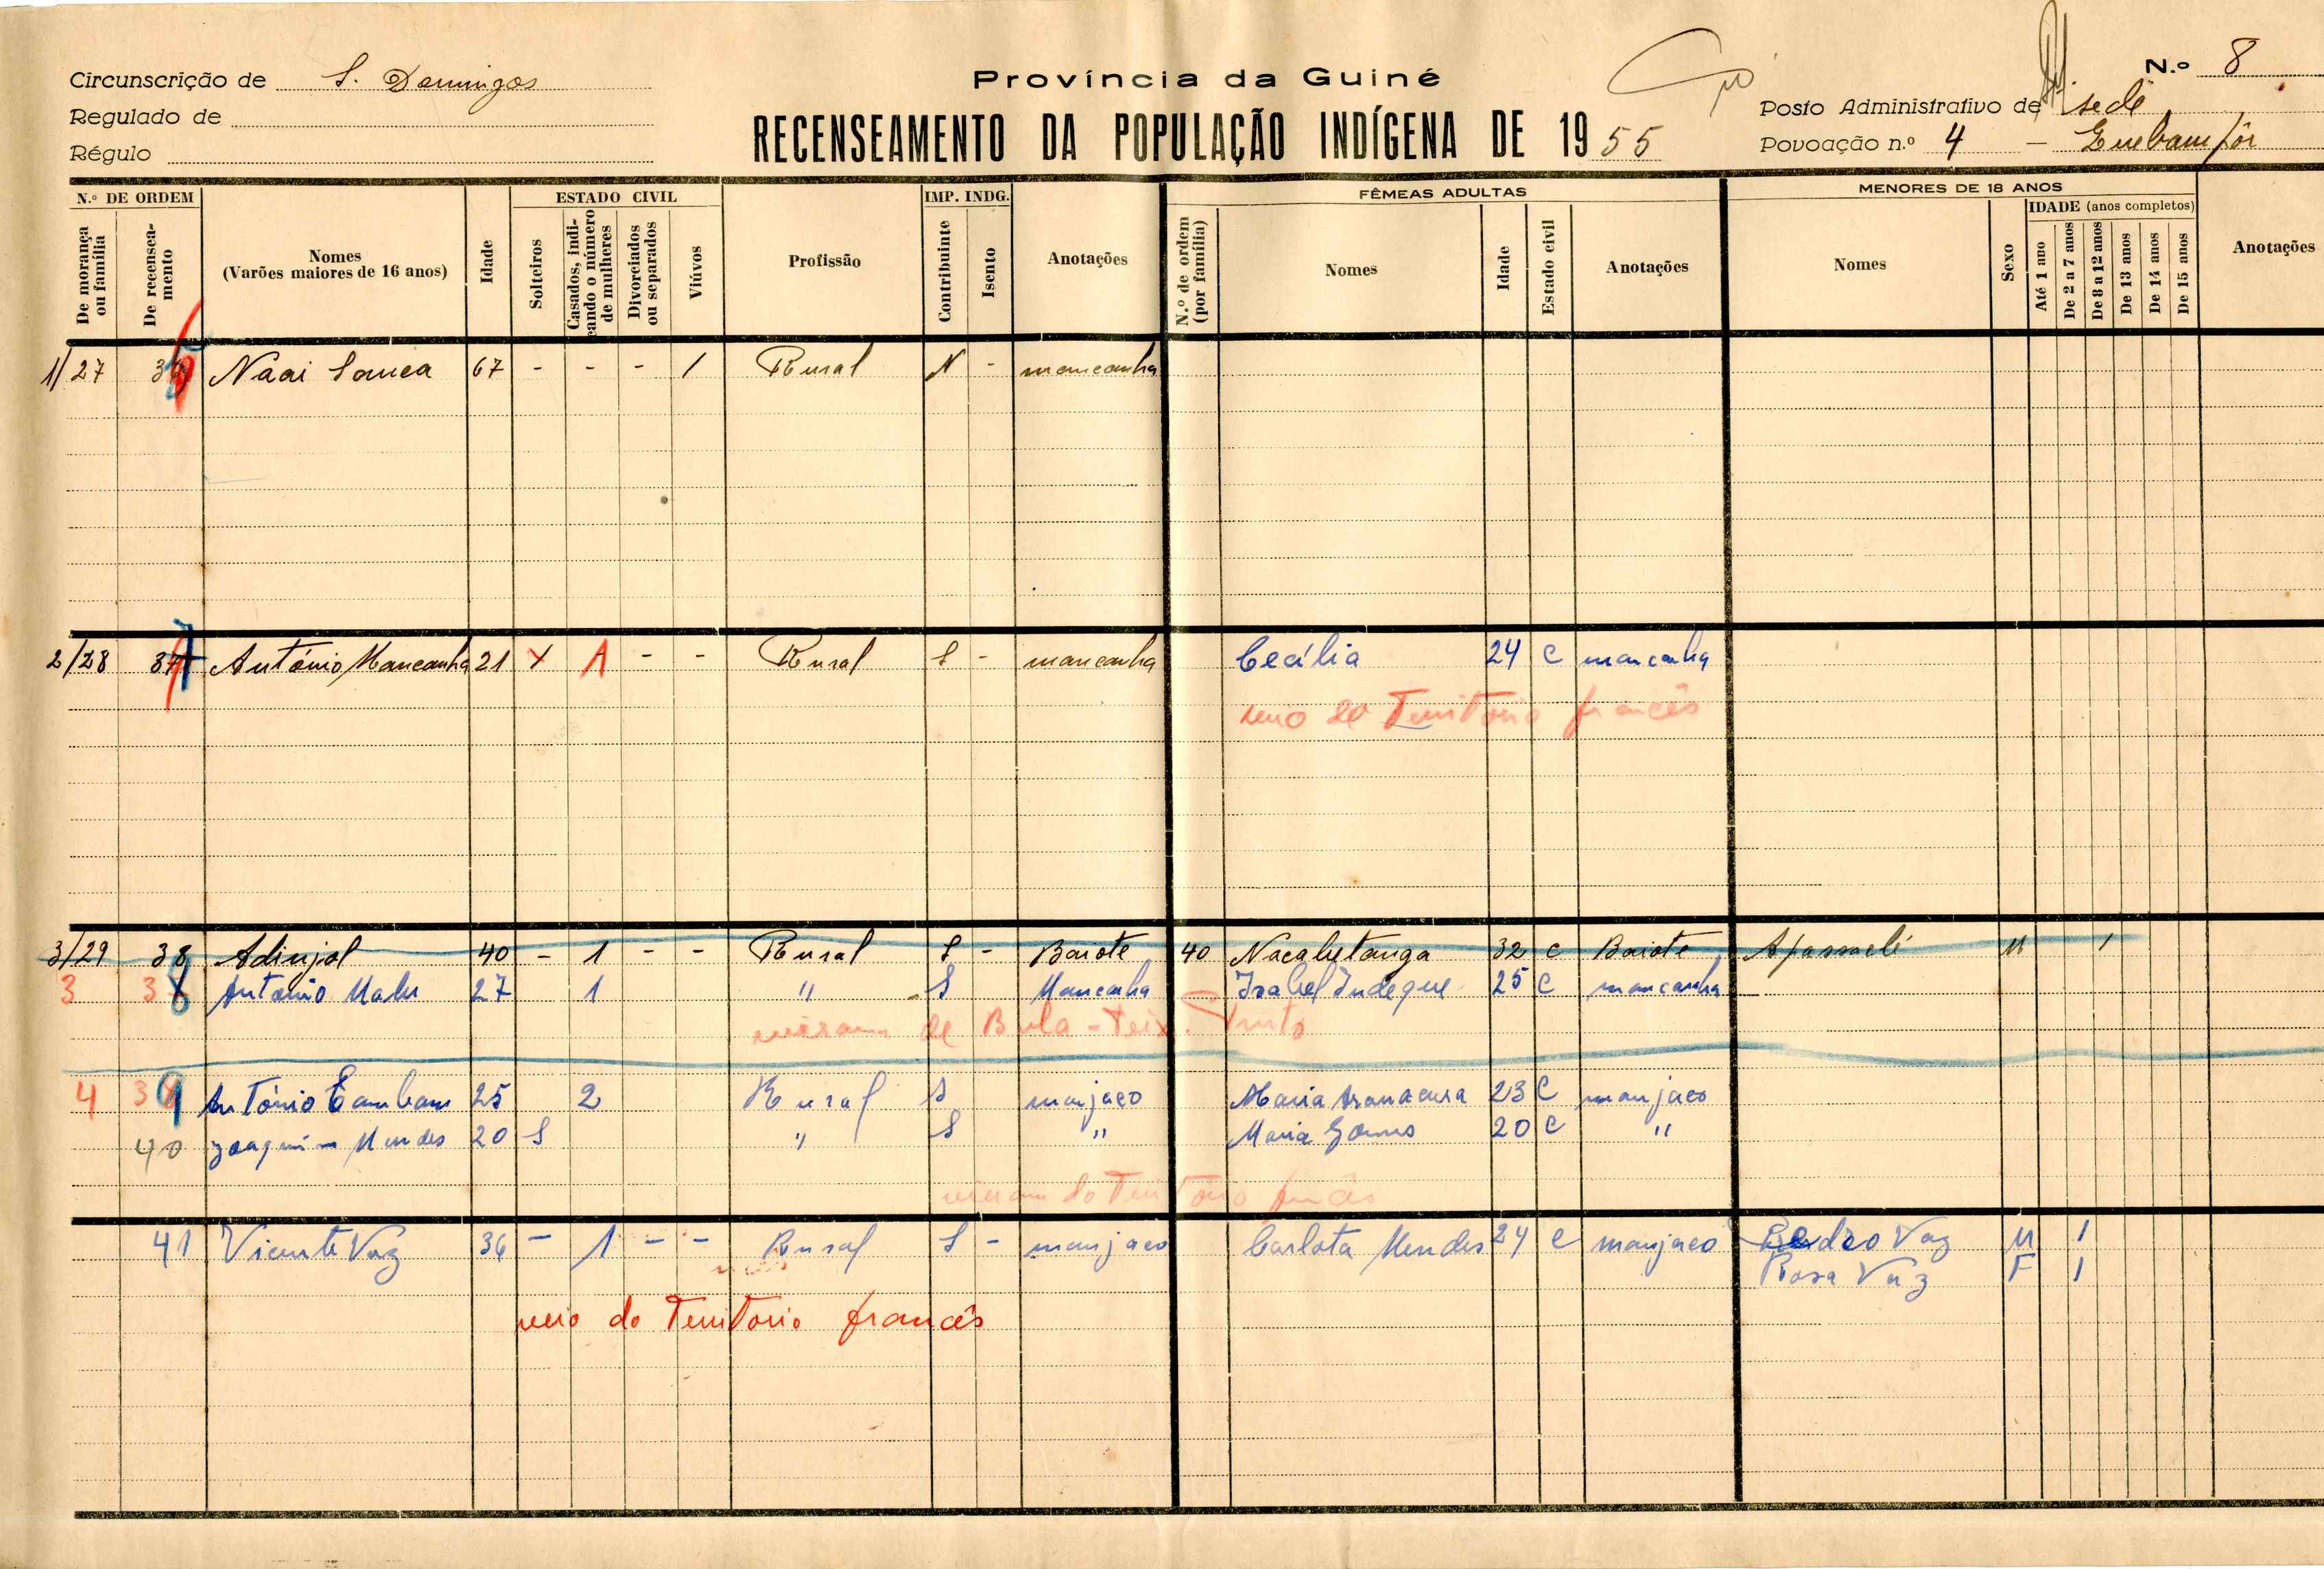 Circunscrição de S. Domingos
Regulado de
Régulo
Província da Guiné
RECENSEAMENTO DA POPULAÇÃO INDÍGENA DE 1955
N.º 8
Posto Administrativo de sede
Povoação n.º 4 —
N.º DE ORDEM
De morança ou família
De recensea-mento
Nomes
(Varões maiores de 16 anos)
Idade
ESTADO CIVIL
Solteiros
Casados, indi-cando o número de mulheres
Divorciados ou separados
Viúvos
Profissão
IMP. INDG.
Contribuinte
Isento
Anotações
FÊMEAS ADULTAS
N.º de ordem (por família)
Nomes
Idade
Estado civil
Anotações
MENORES DE 18 ANOS
Nomes
Sexo
IDADE (anos completos)
Até 1 ano
De 2 a 7 anos
De 8 a 12 anos
De 13 anos
De 14 anos
De 15 anos
Anotações
1/27 Naai 67 - - - 1 Rural N - mancanha
2/28 37 António Mancanha 21 X 1 - - Rural S - mancanha Cecília 24 C mancanha
Território francês
3/29 38 Adinjol 40 - 1 - - Rural S - Baiote 40 Nacabetanga 32 C Baiote M 1
3 38 António Malu 27 1 " S Mancanha Isabel Indeque 25 C mancanha
vieram de Bula - Teix. Pinto
4 39 António 25 2 Rural S manjaco Maria 23 C manjaco
40 Joaquim Mendes 20 S " S " Maria Gomes 20 C "
vieram do Território francês
41 Vicente Vaz 36 - 1 - - Rural S - manjaco Carlota Mendes 24 C manjaco Pedro Vaz M 1
Rosa Vaz F 1
veio do Território francês